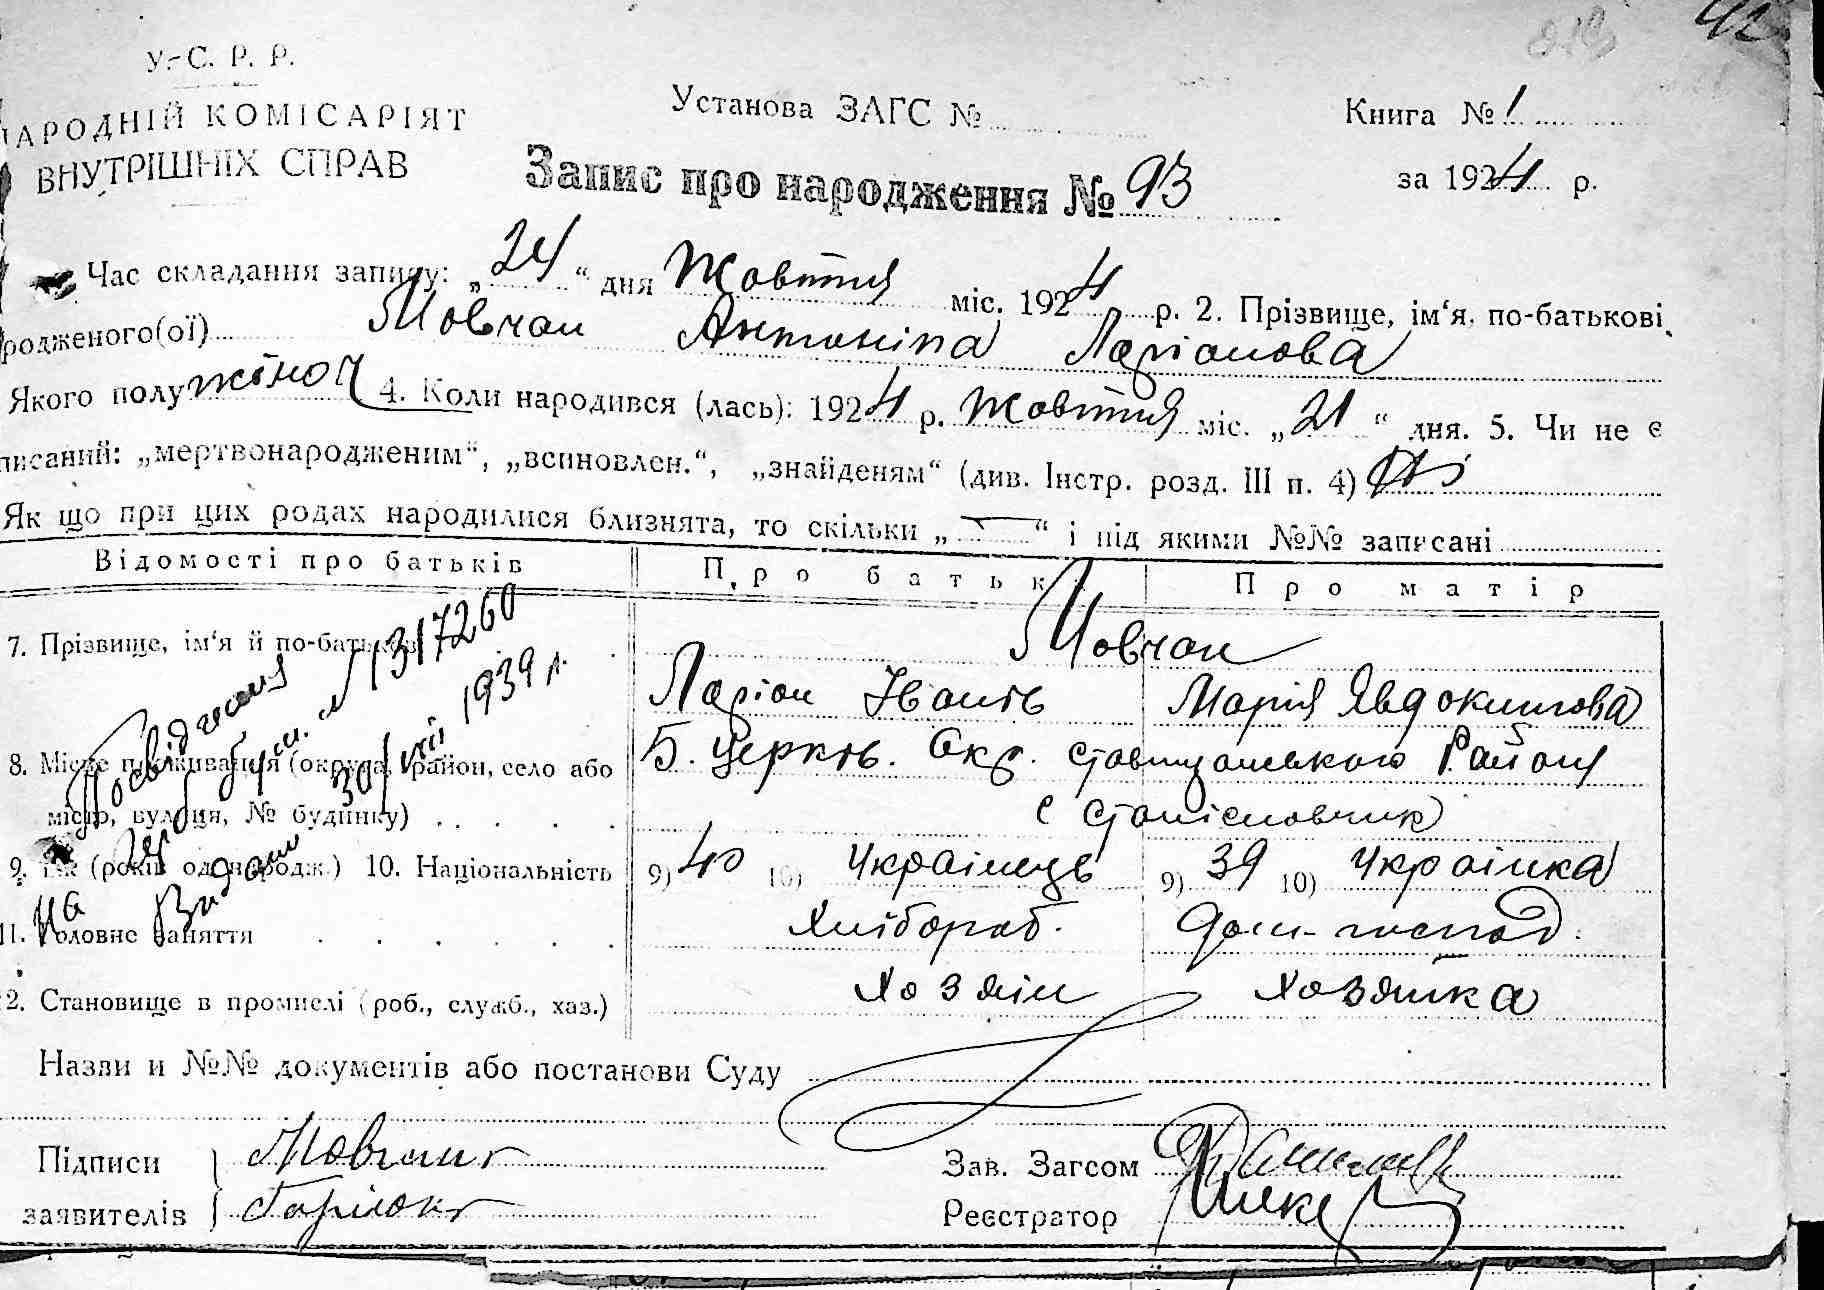 У. С. Р. Р.
НАРОДНІЙ КОМІСАРІЯТ
ВНУТРІШНІХ СПРАВ
Установа ЗАГС №
Книга № 1
за 1924 р.
42
Запис про народження № 93
Час складання запису: „24“ дня Жовтня міс. 1924 р. 2. Прізвище, ім‘я, по-батькові
родженого(ої) Мовчан Антоніна Ларіонова
Якого полу жіноч 4. Коли народився (лась): 1924 р. Жовтня міс. „21“ дня. 5. Чи не є
писаний: „мертвонародженим“, „всиновлен.“, „знайденям“ (див. Інстр. розд. III п. 4) Ні
Як що при цих родах народилися близнята, то скільки „—“ і під якими №№ записані
Відомості про батьків Про батьк Про матір
7. Прізвище, ім‘я й по-батькові Мовчан
Ларіон Іванів Марія Явдокимова
8. Місце проживання (округа, район, село або Б. Церків. Окр. Ставищанського Району
місто, вулиця, № будинку) с Станіславчик
9. Вік (років од народж.) 10. Національність 9) 40 10) Українець 9) 39 10) Українка
11. Головне заняття Хлібороб. дом. господ.
2. Становище в промислі (роб., служб., хаз.) Хозяін Хозяйка
Посвідчення
на герб. бум. № 1317260
Видано 30/VIII 1939 р.
Назви и №№ документів або постанови Суду
Підписи Мовчан
заявителів Ларіон
Зав. Загсом
Реєстратор